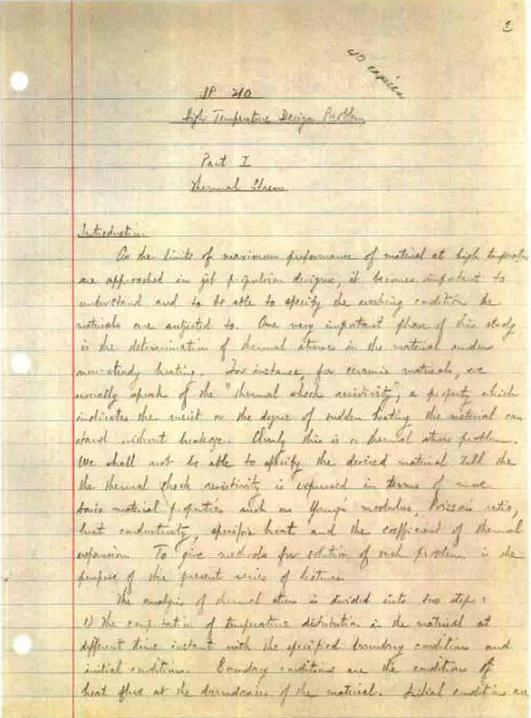 40 copies
JP 210
High Temperature Design Problem
Part I
Thermal Stress
Introduction
As the limits of maximum performance of material at high temperature
are approached in jet propulsion designs, it becomes important to
understand and to be able to specify the working condition the
materials are subjected to. One very important phase of this study
is the determination of thermal stress in the material under
non-steady heating. For instance, for ceramic materials, we
usually speak of the "thermal shock resistivity", a property which
indicates the merit or the degree of sudden heating the material can
stand without breakage. Clearly this is a thermal stress problem.
We shall not be able to specify the desired material till the
the thermal shock resistivity is expressed in terms of more
basic material properties such as Young's modulus, Poisson's ratio,
heat conductivity, specific heat and the coefficient of thermal
expansion. To give methods for solution of such problem is the
purpose of the present series of lectures.
The analysis of thermal stress is divided into two steps:
1) The computation of temperature distribution in the material at
different time instant with the specified boundary conditions and
initial conditions. Boundary conditions are the conditions of
heat flux at the boundaries of the material. Initial conditions are